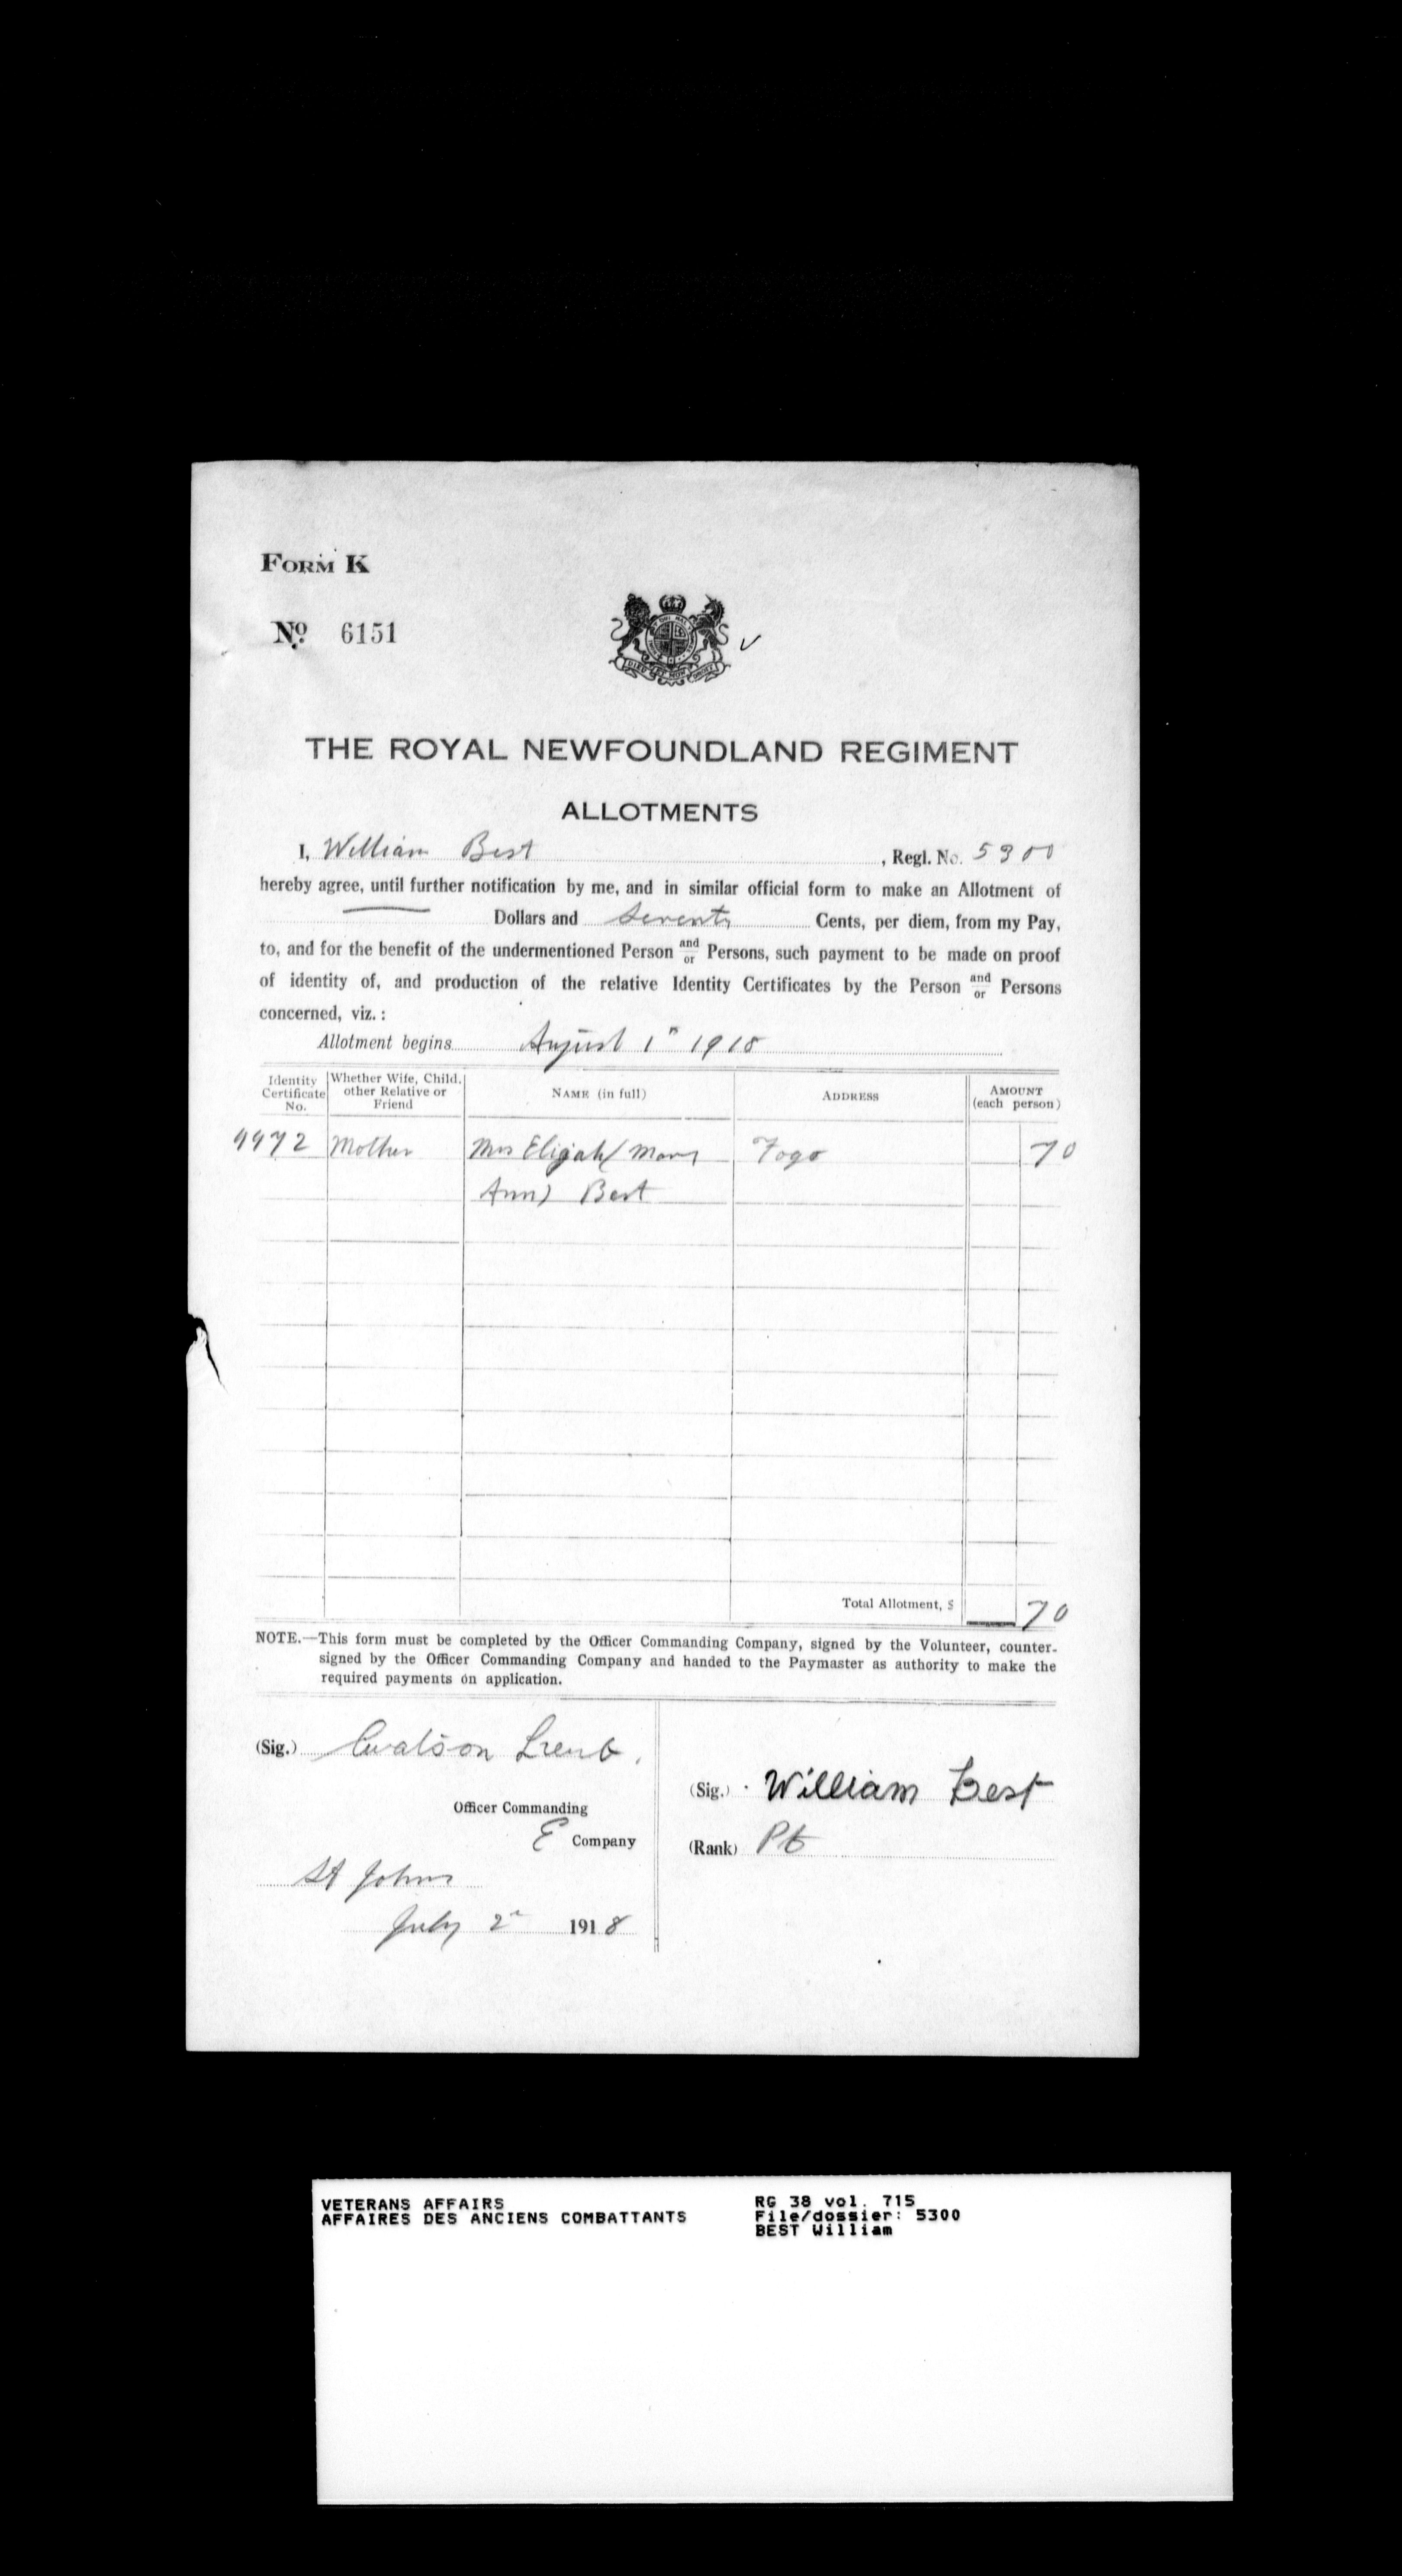 FORM K
No. 6151
THE ROYAL NEWFOUNDLAND REGIMENT
ALLOTMENTS
I, William Best, Regl. No. 5300
hereby agree, until further notification by me, and in similar official form to make an Allotment of
— Dollars and Seventy Cents, per diem, from my Pay,
to, and for the benefit of the undermentioned Person and/or Persons, such payment to be made on proof
of identity of, and production of the relative Identity Certificates by the Person and/or Persons
concerned, viz.:
Allotment begins August 1st 1918
Identity Certificate No. Whether Wife, Child, other Relative or Friend NAME (in full) ADDRESS AMOUNT (each person)
4472 Mother Mrs Elijah (Mary Fogo 70
Ann) Best
Total Allotment, $ 70
NOTE.—This form must be completed by the Officer Commanding Company, signed by the Volunteer, counter-
signed by the Officer Commanding Company and handed to the Paymaster as authority to make the
required payments on application.
(Sig.) Lieut.
Officer Commanding
E Company
St Johns
July 2 1918
(Sig.) William Best
(Rank) Pt
VETERANS AFFAIRS
AFFAIRES DES ANCIENS COMBATTANTS
RG 38 vol. 715
File/dossier: 5300
BEST William